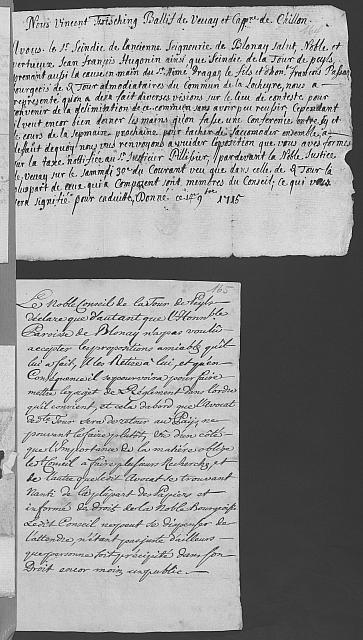 Nous Vincent Frisching Ballif de Vevay et Capne. de Chillon.
A vous le Sr. Scindic de lancienne Seigneurie de Blonay salut, Noble et
vertueux Jean François Hugonin ainsi que Scindic de la Tour de peyls
prenant aussi la cause en main du Sr. Aimé Dragan le fils et d'hon. François
bourgeois de d. Tour admodiataires du Commun de la nous a
représenté qu'on a desja fait diverses visions sur le lieu de conteste pour
convenir de la délimitation de ce commun sans avoir pu reussir, Cependant
il veut encor bien donner les mains qu'on fasse une Conférence entre cy et
le cours de la sepmaine prochaine pour tacher de saccomoder ensemble, à
défaut dequoy nous vous renvoyons a vuider lopposition que vous avés formée
sur la taxe notifiée au Sr. par devant la Noble Justice
de Vevay sur le sammdi 30e. du Courant veu que dans celle de d. Tour la
pluspart de ceux qui la Composent sont membres du Conseil, ce qui vous
sera signifié pour caduité, Donné ce 9 1715
165
Le Noble Conseil de la Tour de Peylz
déclare que d'autant que l'Honnble
Paroisse de Blonay n'a pas voulu
accepter les propositions amiables qu'il
lui a fait, Il les Retire à lui, et qu'en
Conséquence il se pourvoira pour faire
mettre le projet de Réglement dans l'ordre
qu'il convient, et cela d'abord que l'Avocat
de dte. Tour sera de retour au Païs, ne
pouvant le faire plutôt, vû d'un côté
que l'importance de la matière oblige
le Conseil à faire plusieurs Recherches et
de l'autre que led. Avocat se trouvant
Nanti de la plûpart des Papiers et
informé du droit de la Noble Bourgeoisie
Ledit Conseil ne peut se dispenser de
l'attendre, n'étant pas juste d'ailleurs
que personne soit précipité dans son
Droit encor moins un public.